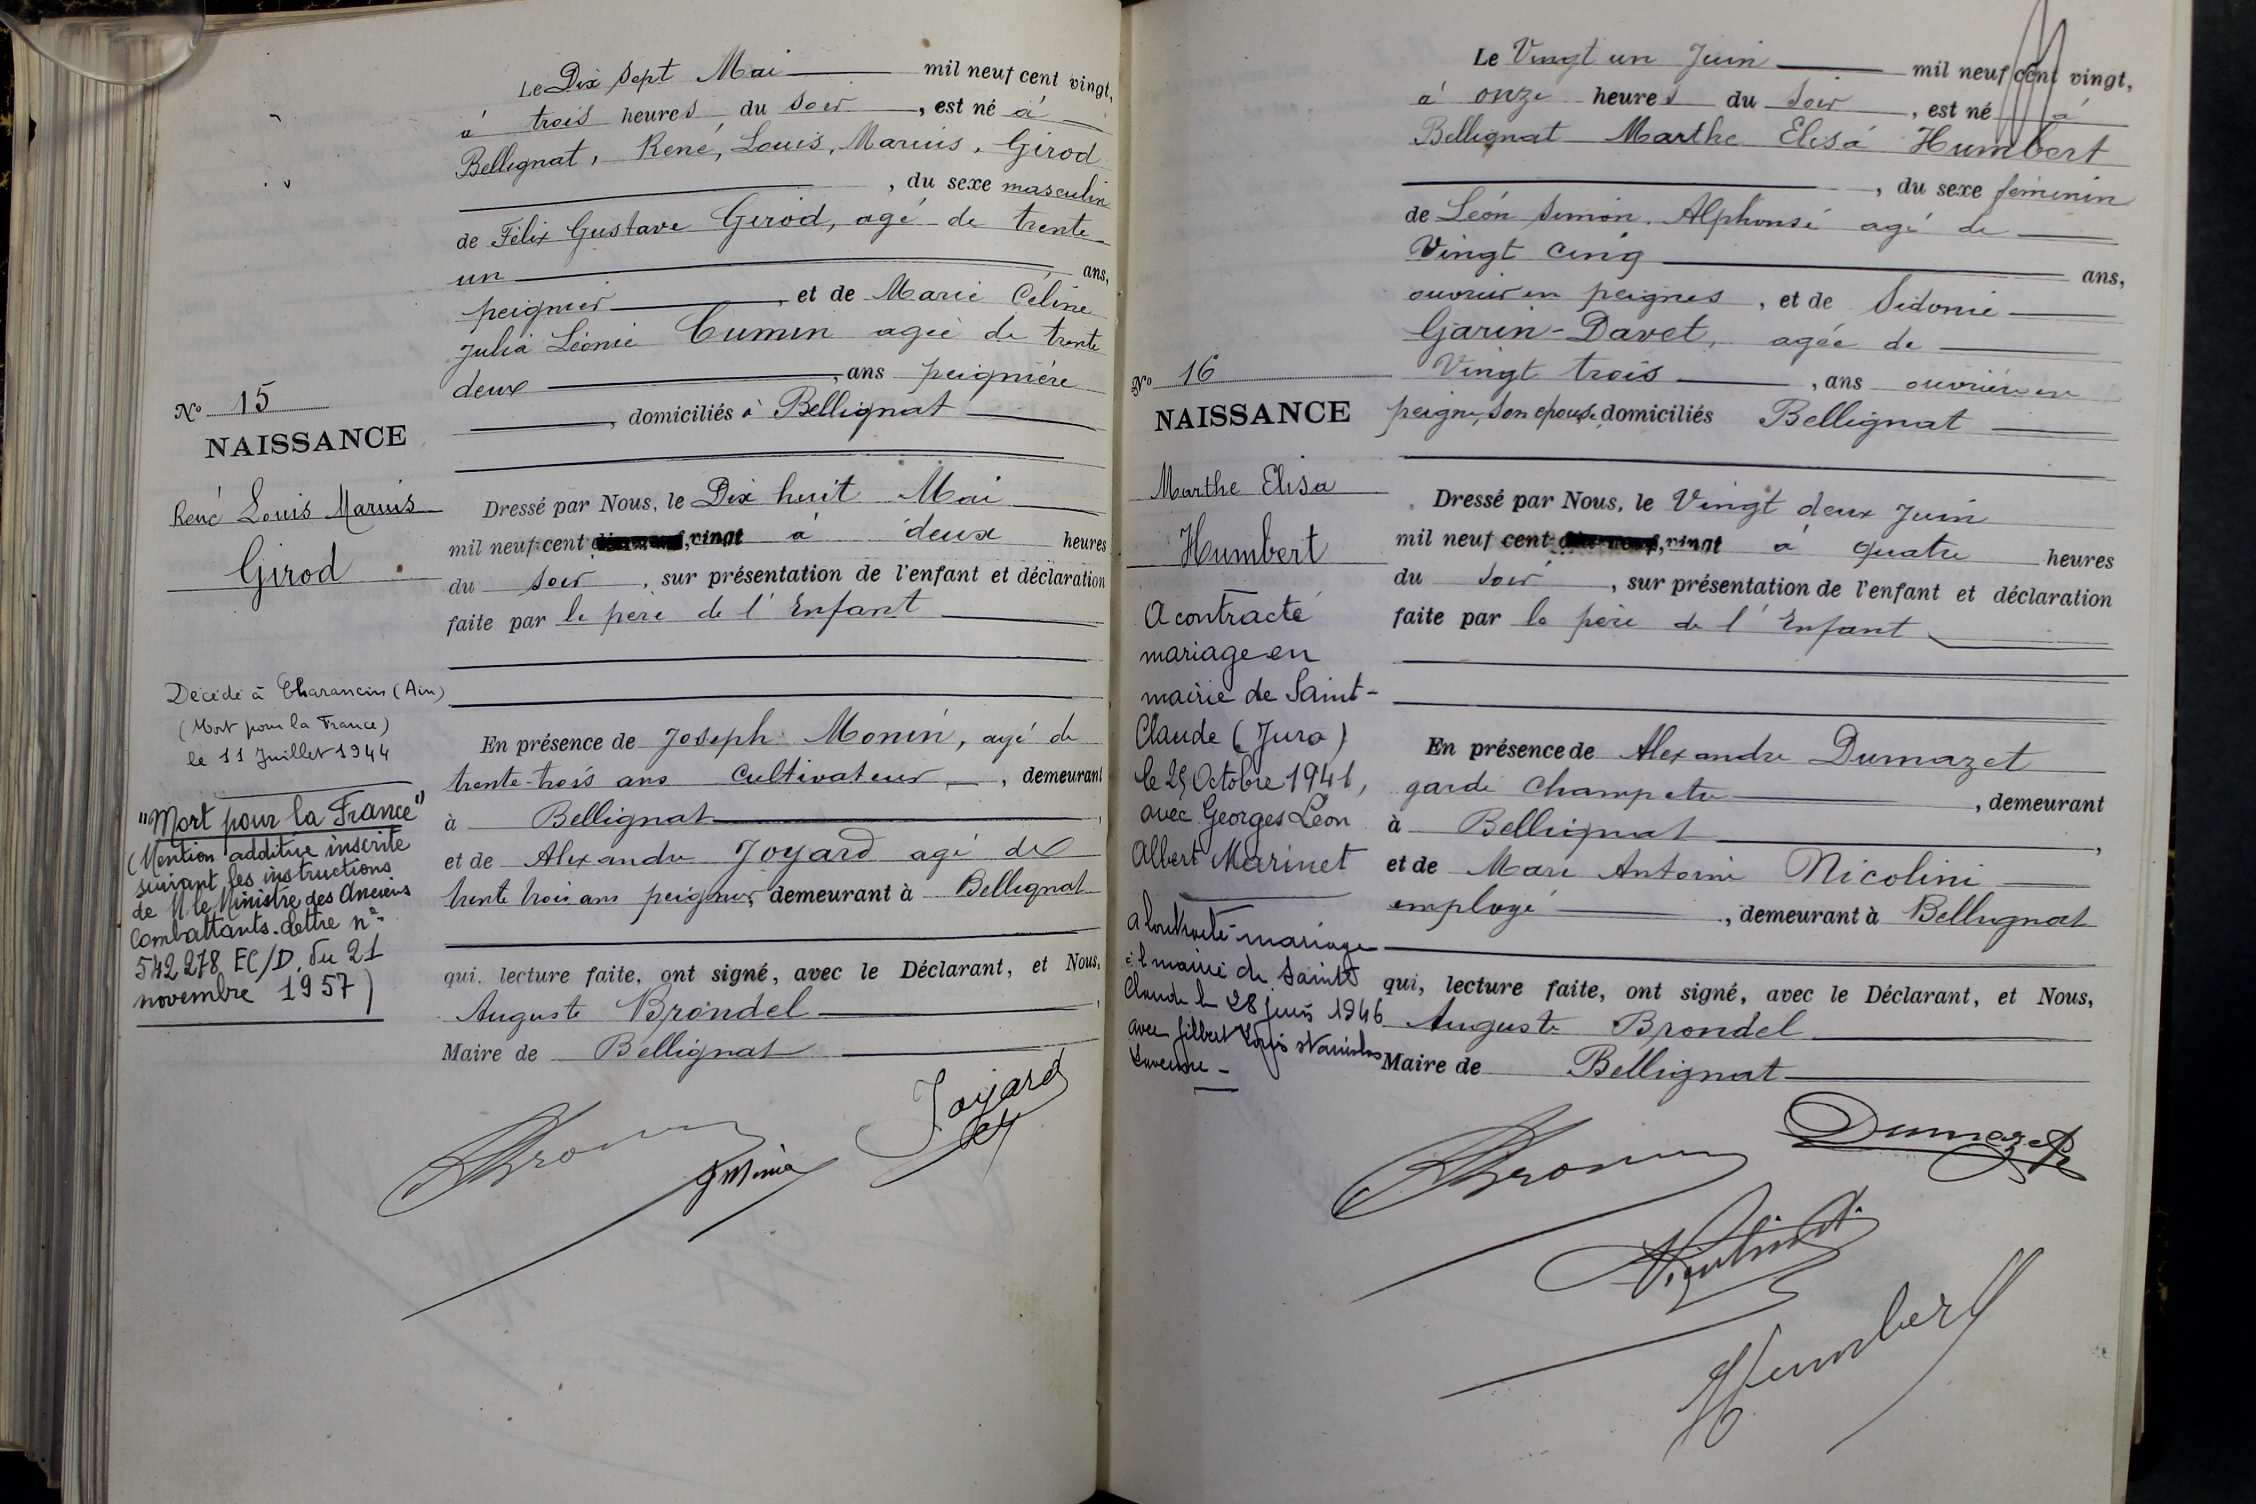 Le Dix Sept Mai mil neuf cent vingt,
à trois heures du soir, est né à
Bellignat, René, Louis, Marius, Girod
, du sexe masculin
de Félix Gustave Girod, agé de trente
un ans,
peignier, et de Marie Céline
Julia Léonie Cumin agée de trente
deux, ans peignière
, domiciliés à Bellignat
Nº 15
NAISSANCE
René Louis Marius
Girod
Dressé par Nous, le Dix huit Mai
mil neuf cent vingt à deux heures
du soir, sur présentation de l'enfant et déclaration
faite par le père de l'Enfant
Décédé à Charancin (Ain)
(Mort pour la France)
le 11 Juillet 1944
"Mort pour la France"
(Mention additive inscrite
suivant les instructions
de M. le Ministre des Anciens
Combattants. lettre nº
542 278 EC/D du 21
novembre 1957)
En présence de Joseph Monin, agé de
trente-trois ans cultivateur, demeurant
à Bellignat,
et de Alexandre Joyard agé de
trente trois ans peignier, demeurant à Bellignat
qui, lecture faite, ont signé, avec le Déclarant, et Nous,
Auguste Brondel
Maire de Bellignat
Joyard
Le Vingt un Juin mil neuf cent vingt,
à onze heures du soir, est né à
Bellignat Marthe Elisa Humbert
, du sexe féminin
de Léon Simon Alphonse agé de
Vingt cinq ans,
ouvrier en peignes, et de Sidonie
Garin-Davet, agée de
Vingt trois, ans ouvrière en
peigne, son epouse, domiciliés Bellignat
Nº 16
NAISSANCE
Marthe Elisa
Humbert
Dressé par Nous, le Vingt deux Juin
mil neuf cent vingt à quatre heures
du soir, sur présentation de l'enfant et déclaration
faite par le père de l'Enfant
A contracté
mariage en
mairie de Saint-
Claude (Jura)
le 25 Octobre 1941,
avec Georges Léon
Albert Marinet
a contracté mariage
à la mairie de Saint
Claude le 28 juin 1946
avec Gilbert Louis Stanislas
En présence de Alexandre Dumazet
garde champetre, demeurant
à Bellignat,
et de Marc Antoine Nicolini
employé, demeurant à Bellignat
qui, lecture faite, ont signé, avec le Déclarant, et Nous,
Auguste Brondel
Maire de Bellignat
Dumazet
Humbert